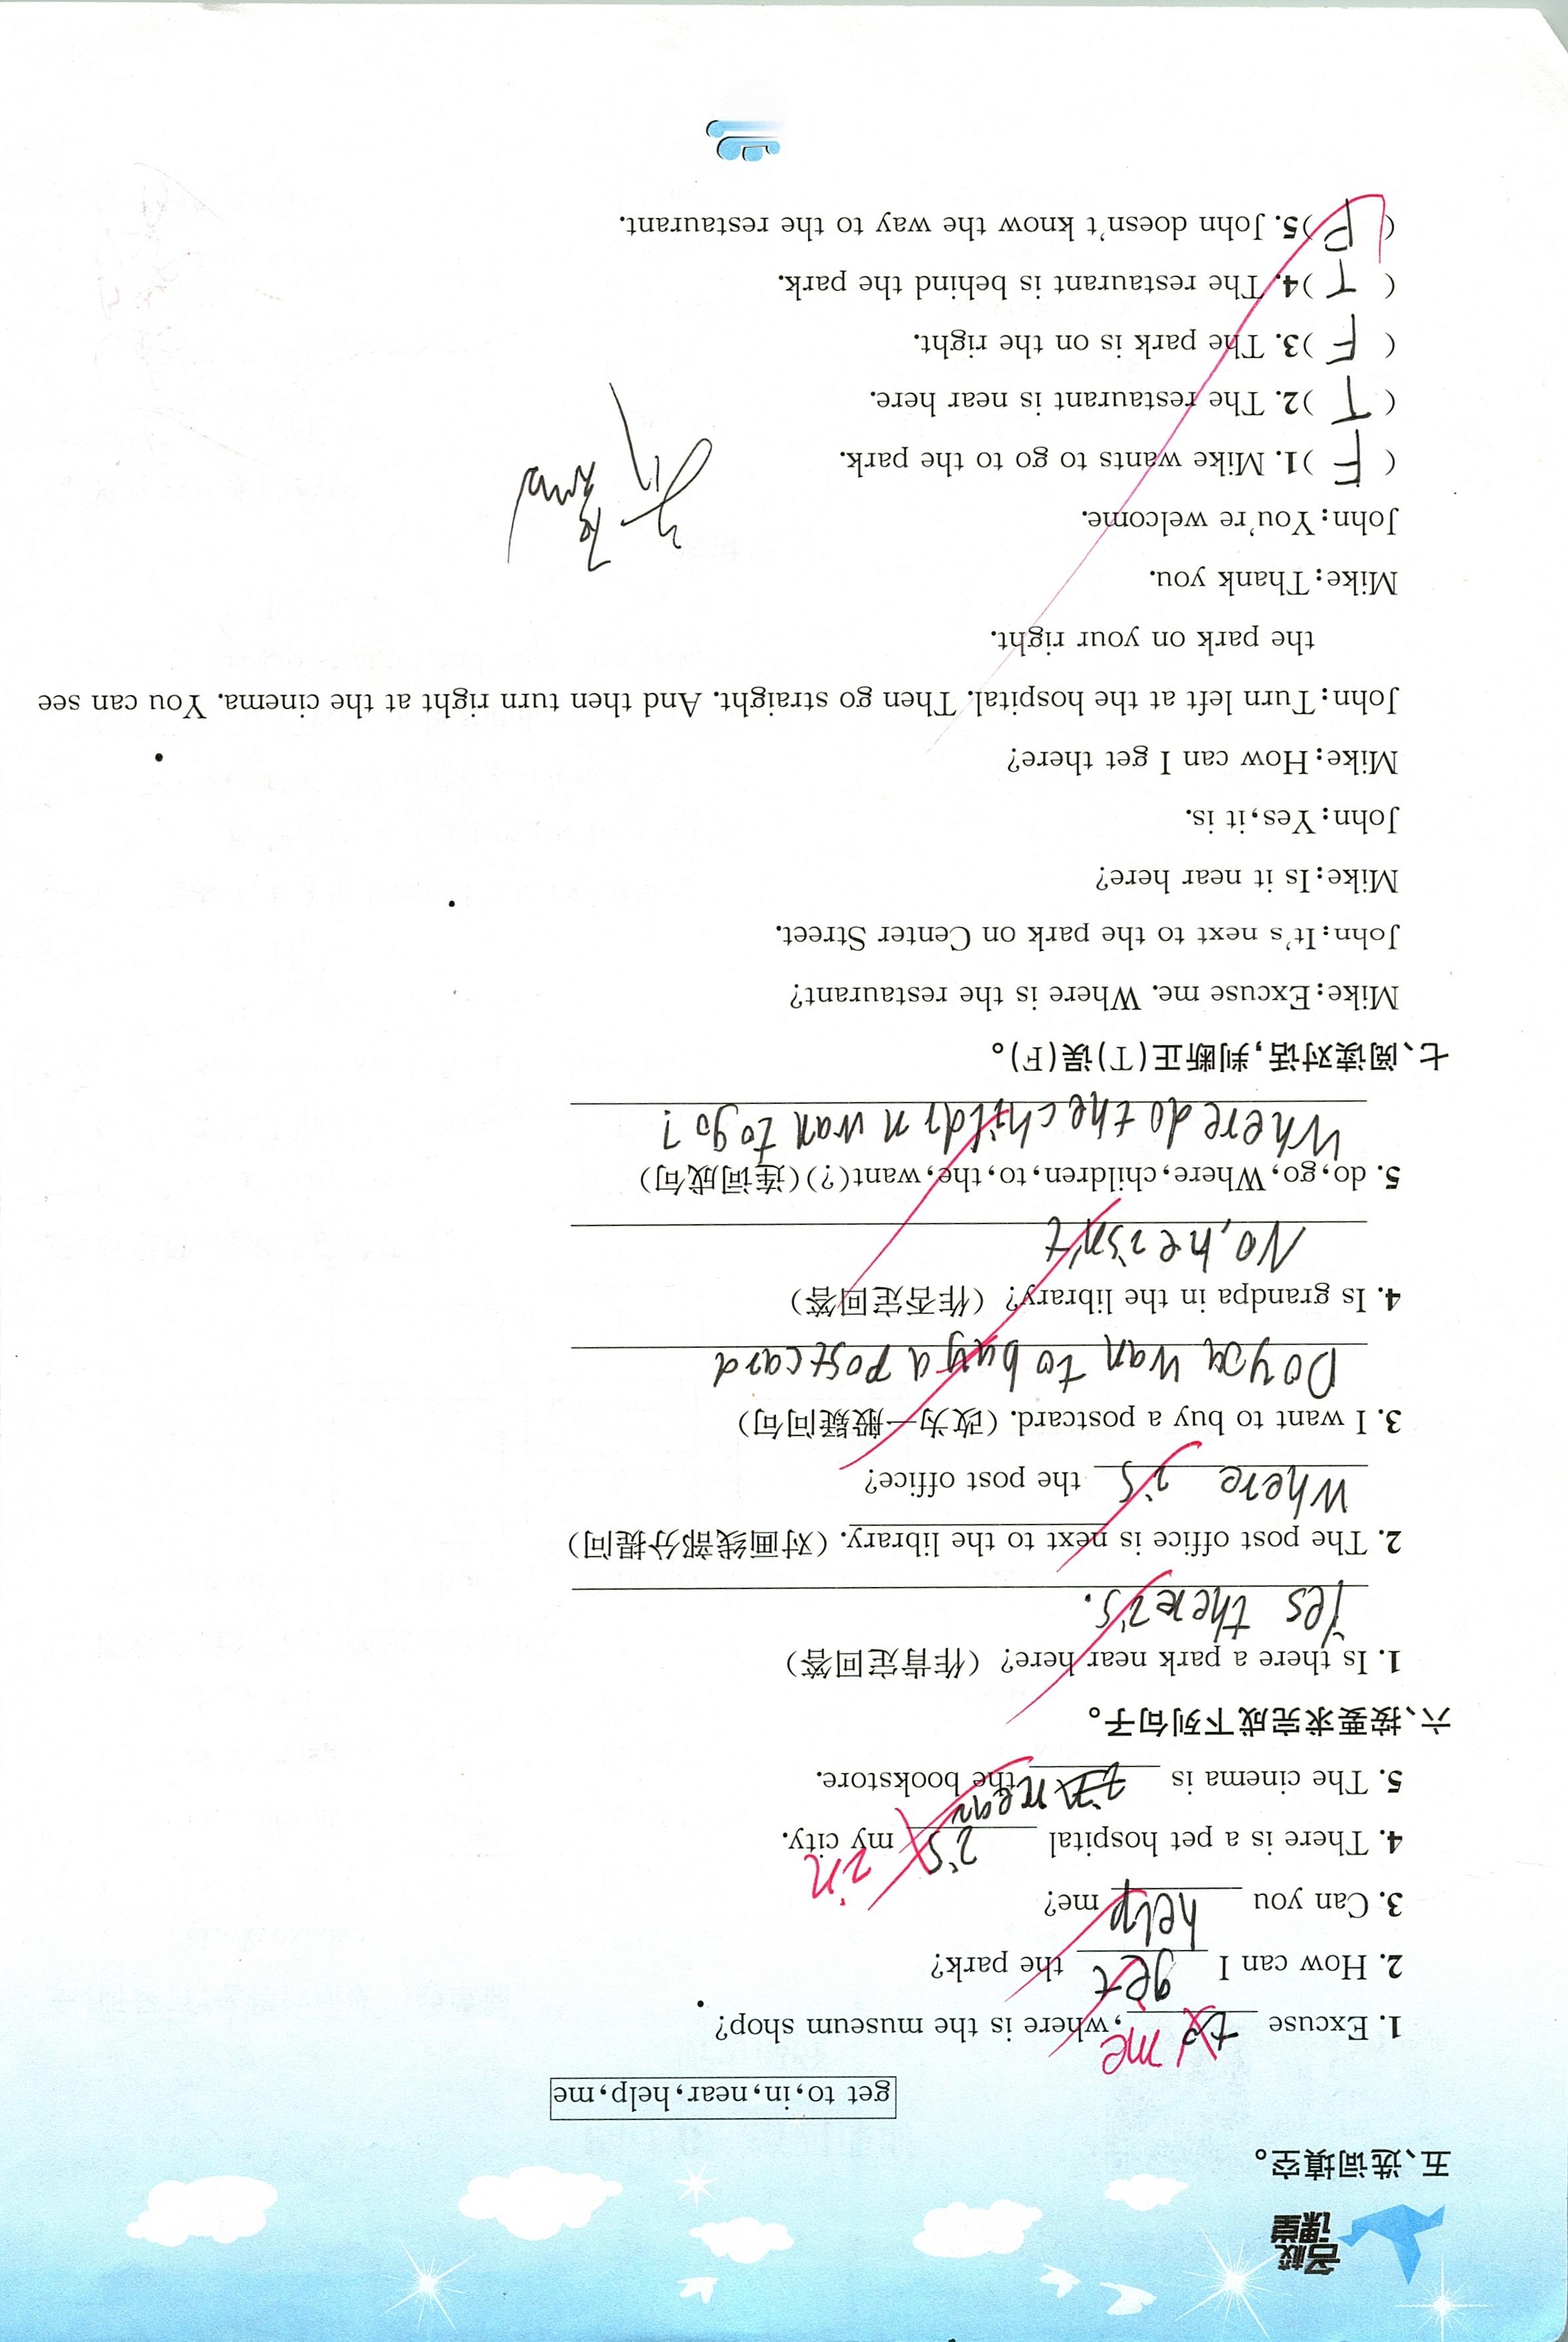 名校课堂
五、选词填空。
get to,in,near,help,me
1. Excuse to me,where is the museum shop?
2. How can I get the park?
3. Can you help me?
4. There is a pet hospital is my city.
in
5. The cinema is near the bookstore.
六、按要求完成下列句子。
1. Is there a park near here? (作肯定回答)
Yes there is.
2. The post office is next to the library. (对画线部分提问)
Where is the post office?
3. I want to buy a postcard. (改为一般疑问句)
Do you wan to buy a postcard
4. Is grandpa in the library? (作否定回答)
No, he isn't
5. do,go,Where,children,to,the,want(?)(连词成句)
Where do the childrn wan to go?
七、阅读对话,判断正(T)误(F)。
Mike:Excuse me. Where is the restaurant?
John:It's next to the park on Center Street.
Mike:Is it near here?
John:Yes,it is.
Mike:How can I get there?
John:Turn left at the hospital. Then go straight. And then turn right at the cinema. You can see
the park on your right.
Mike:Thank you.
John:You're welcome.
( F )1. Mike wants to go to the park.
( T )2. The restaurant is near here.
( F )3. The park is on the right.
( T )4. The restaurant is behind the park.
( )5. John doesn't know the way to the restaurant.